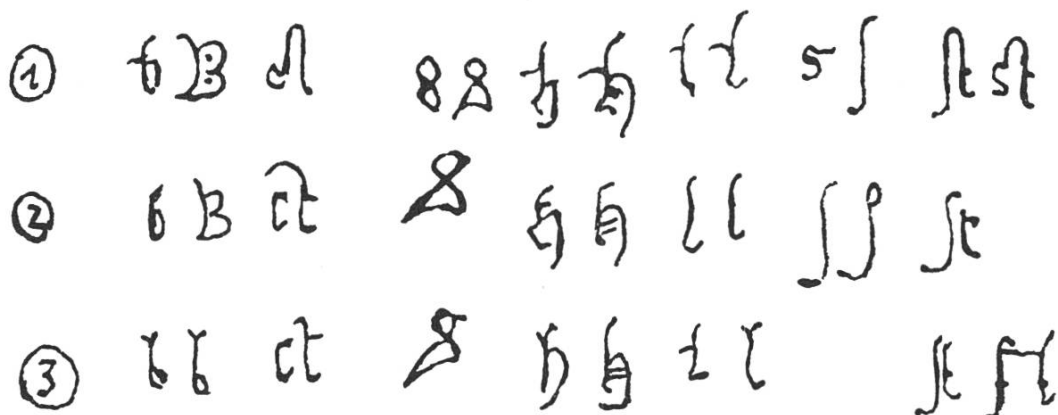 ① b B ct & & h h l l s ſ ſt st
② b B ct & h h l l ſ ſ ſt
③ b b ct & h h l l ſt ſt